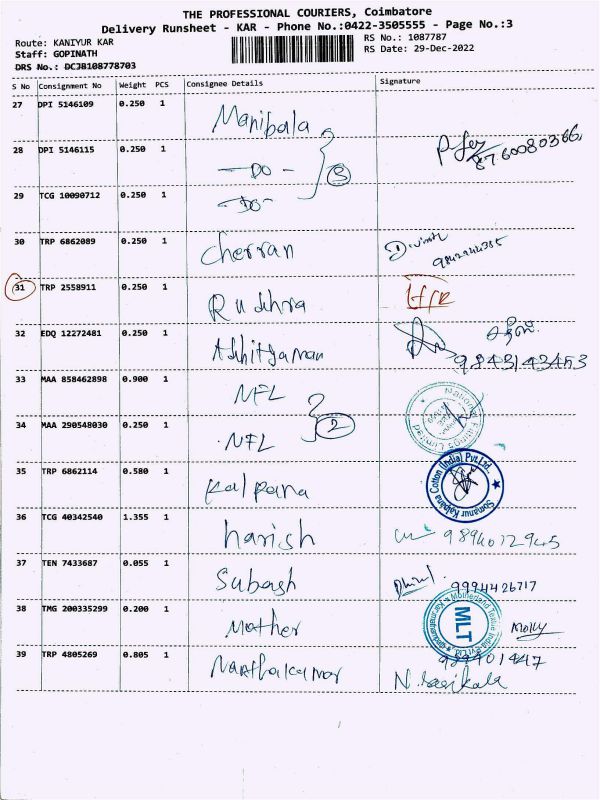 THE PROFESSIONAL COURIERS, Coimbatore
Delivery Runsheet - KAR - Phone No.:0422-3505555 - Page No.:3
Route: KANIYUR KAR
RS No.: 1087787
Staff: GOPINATH
RS Date: 29-Dec-2022
DRS No.: DCJB108778703
S No Consignment No Weight PCS Consignee Details Signature
27 DPI 5146109 0.250 1 Manibala
28 DPI 5146115 0.250 1 —DO— 3
29 TCG 10090712 0.250 1 —DO—
30 TRP 6862089 0.250 1 Cherran
31 TRP 2558911 0.250 1 Rudhra
32 EDQ 12272481 0.250 1 Adhityaman
9843143453
33 MAA 858462898 0.900 1 NFL
National Fittings Limited
34 MAA 290548030 0.250 1 NFL 2
35 TRP 6862114 0.580 1 Kalpana
Somanur Kalpana Cotton (India) Pvt Ltd.
36 TCG 40342540 1.355 1 harish 9894012945
37 TEN 7433687 0.055 1 Subash 9994426717
38 TMG 200335299 0.200 1 Mother MLT Molly
39 TRP 4805269 0.805 1 Nanthakumar 989401447
N. Sasikala